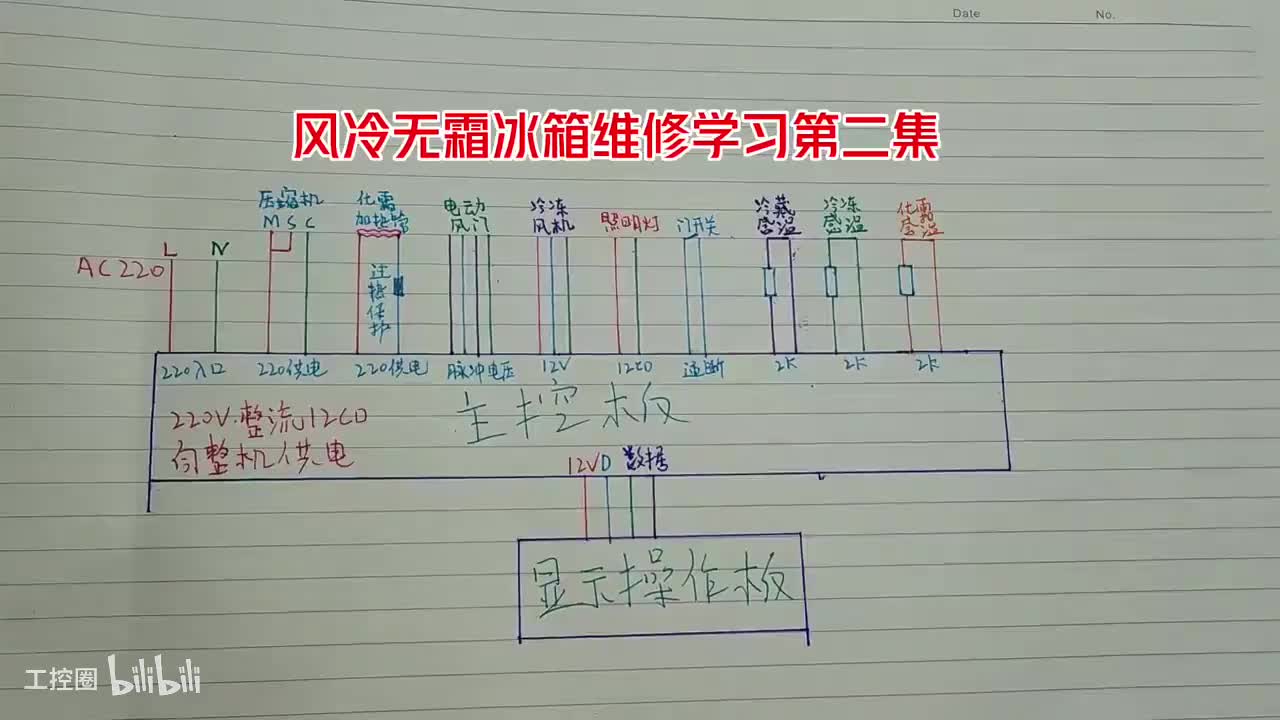 Date No.
风冷无霜冰箱维修学习第二集
压缩机
M S C
化霜
加热管
电动
风门
冷冻
风机
照明灯
门开关
冷藏
感温
冷冻
感温
化霜
感温
L N
AC220
过
热
保
护
220入口 220供电 220供电 脉冲电压 12V 12CD 通断 2K 2K 2K
220V.整流12CD
向整机供电
主控板
12V D 数据
显示操作板
工控圈 bilibili